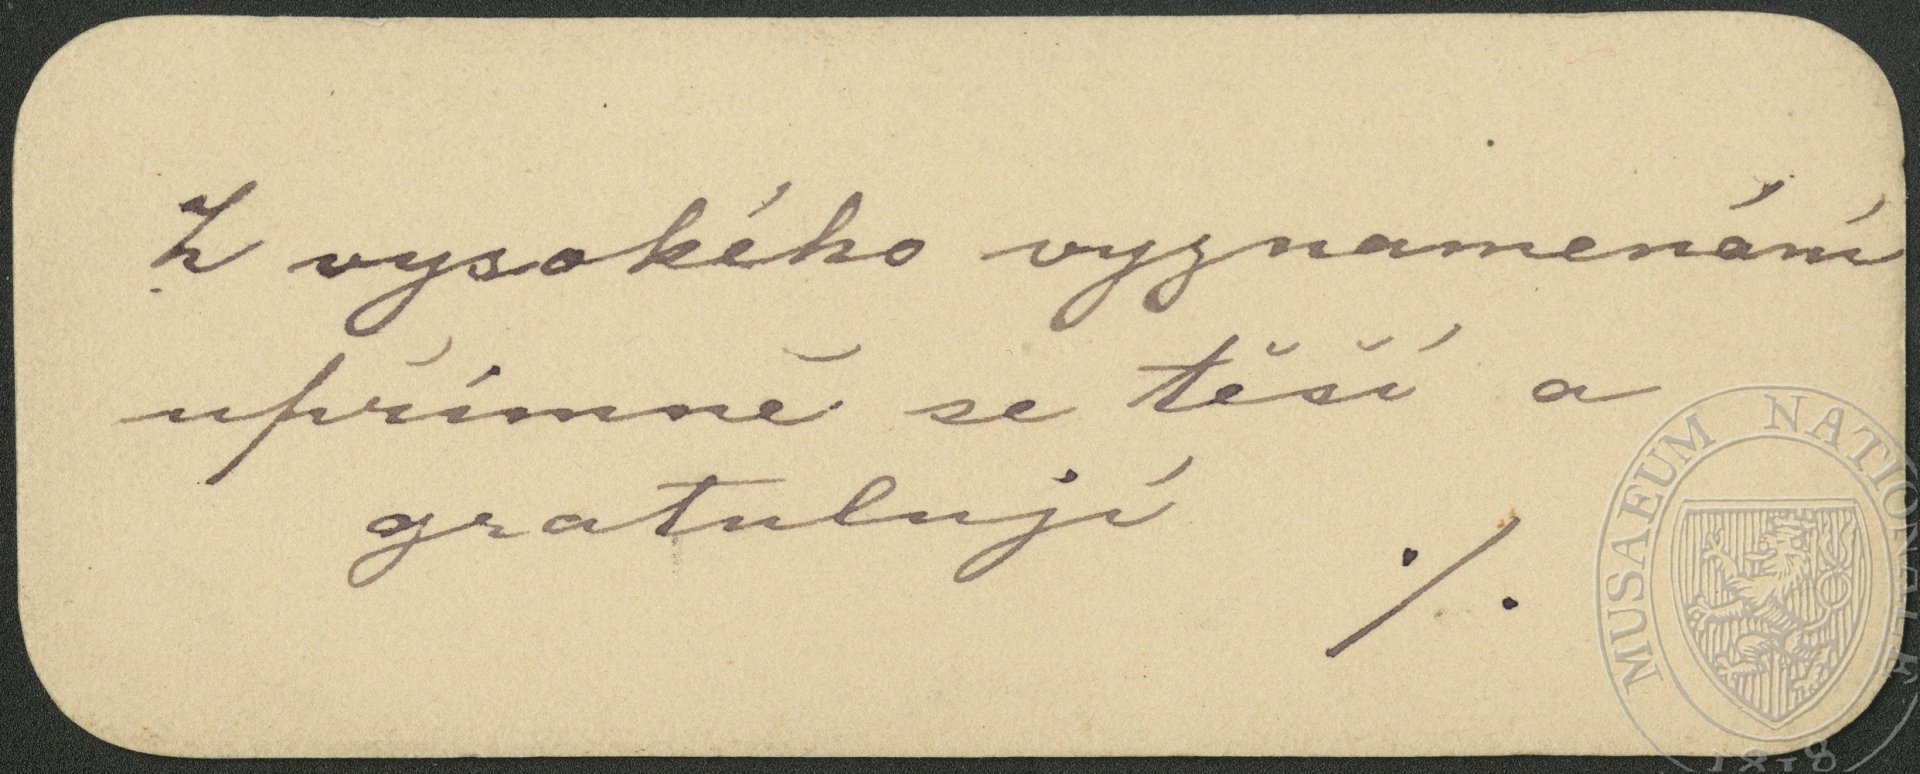 Z vysokého vyznamenání
upřímně se těší a
gratulují
./.
MUSAEUM NATIONALE
1818